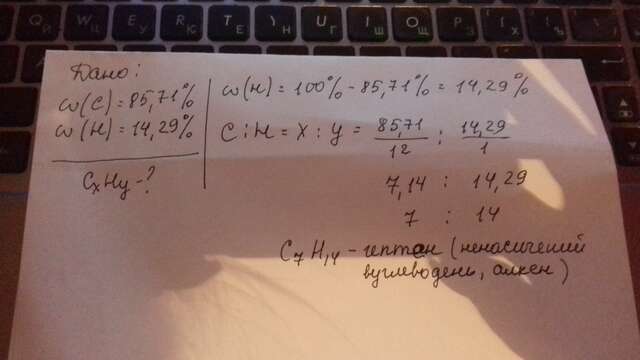 Дано:
w(C) = 85,71%
w(H) = 14,29%
CxHy - ?
w(H) = 100% - 85,71% = 14,29%
C : H = X : y = 85,71/12 : 14,29/1
7,14 : 14,29
7 : 14
C7H14 - гептен (ненасичений
вуглеводень, алкен)